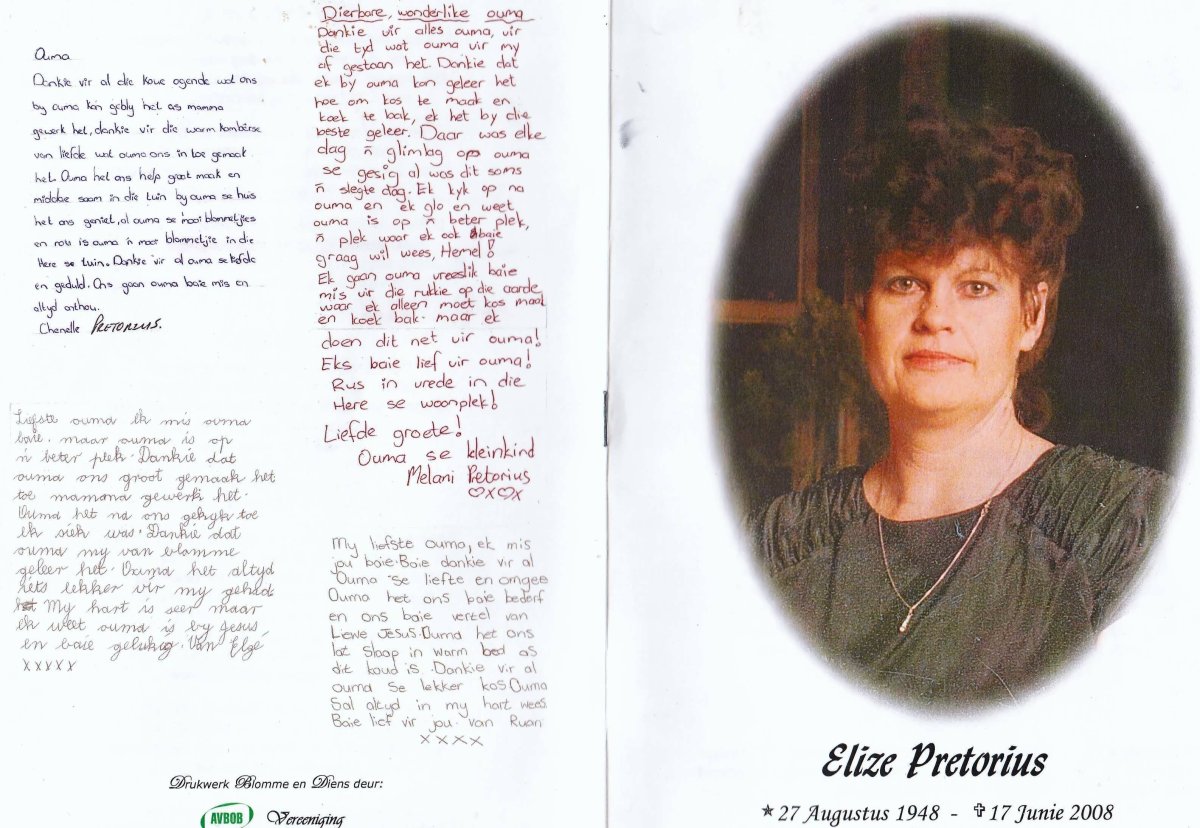 Ouma
Dankie vir al die koue oggende wat ons
by ouma kon gebly het as mamma
gewerk het, dankie vir die warm komberse
van liefde wat ouma ons in toe gemaak
het. Ouma het ons help groot maak en
middae saam in die tuin by ouma se huis
het ons geniet, al ouma se mooi blommetjies
en nou is ouma 'n mooi blommetjie in die
Here se tuin. Dankie vir al ouma se liefde
en geduld. Ons gaan ouma baie mis en
altyd onthou.
Chenelle PRETORIUS.
Liefste ouma Ek mis ouma
baie. maar ouma is op
'n beter plek. Dankie dat
ouma ons groot gemaak het
toe mamma gewerk het.
Ouma het na ons gekyk toe
ek siek was. Dankie dat
ouma my van blomme
geleer het. Ouma het altyd
iets lekker vir my gehad
My hart is seer maar
ek weet ouma is by Jesus,
en baie gelukig. Van Elzé
xxxxx
Dierbare, wonderlike ouma
Dankie vir alles ouma, vir
die tyd wat ouma vir my
af gestaan het. Dankie dat
ek by ouma kon geleer het
hoe om kos te maak en
koek te bak, ek het by die
beste geleer. Daar was elke
dag 'n glimlag op ouma
se gesig al was dit soms
'n slegte dag. Ek kyk op na
ouma en ek glo en weet
ouma is op 'n beter plek,
'n plek waar ek ook baie
graag wil wees, Hemel!
Ek gaan ouma vreeslik baie
mis vir die rukkie op die aarde
waar ek alleen moet kos maak
en koek bak. maar ek
doen dit net vir ouma!
Eks baie lief vir ouma!
Rus in vrede in die
Here se woonplek!
Liefde groete!
Ouma se kleinkind
Melani Pretorius
♡x♡x
My liefste Ouma, ek mis
jou baie. Baie dankie vir al
Ouma se liefte en omgee
Ouma het ons baie bederf
en ons baie vertel van
Liewe Jesus. Ouma het ons
lat slaap in warm bed as
dit koud is. Dankie vir al
ouma se lekker kos. Ouma
Sal altyd in my hart wees.
Baie lief vir jou. van Ruan
xxxx
Drukwerk Blomme en Diens deur:
AVBOB Vereeniging
Elize Pretorius
★ 27 Augustus 1948 - ✞ 17 Junie 2008